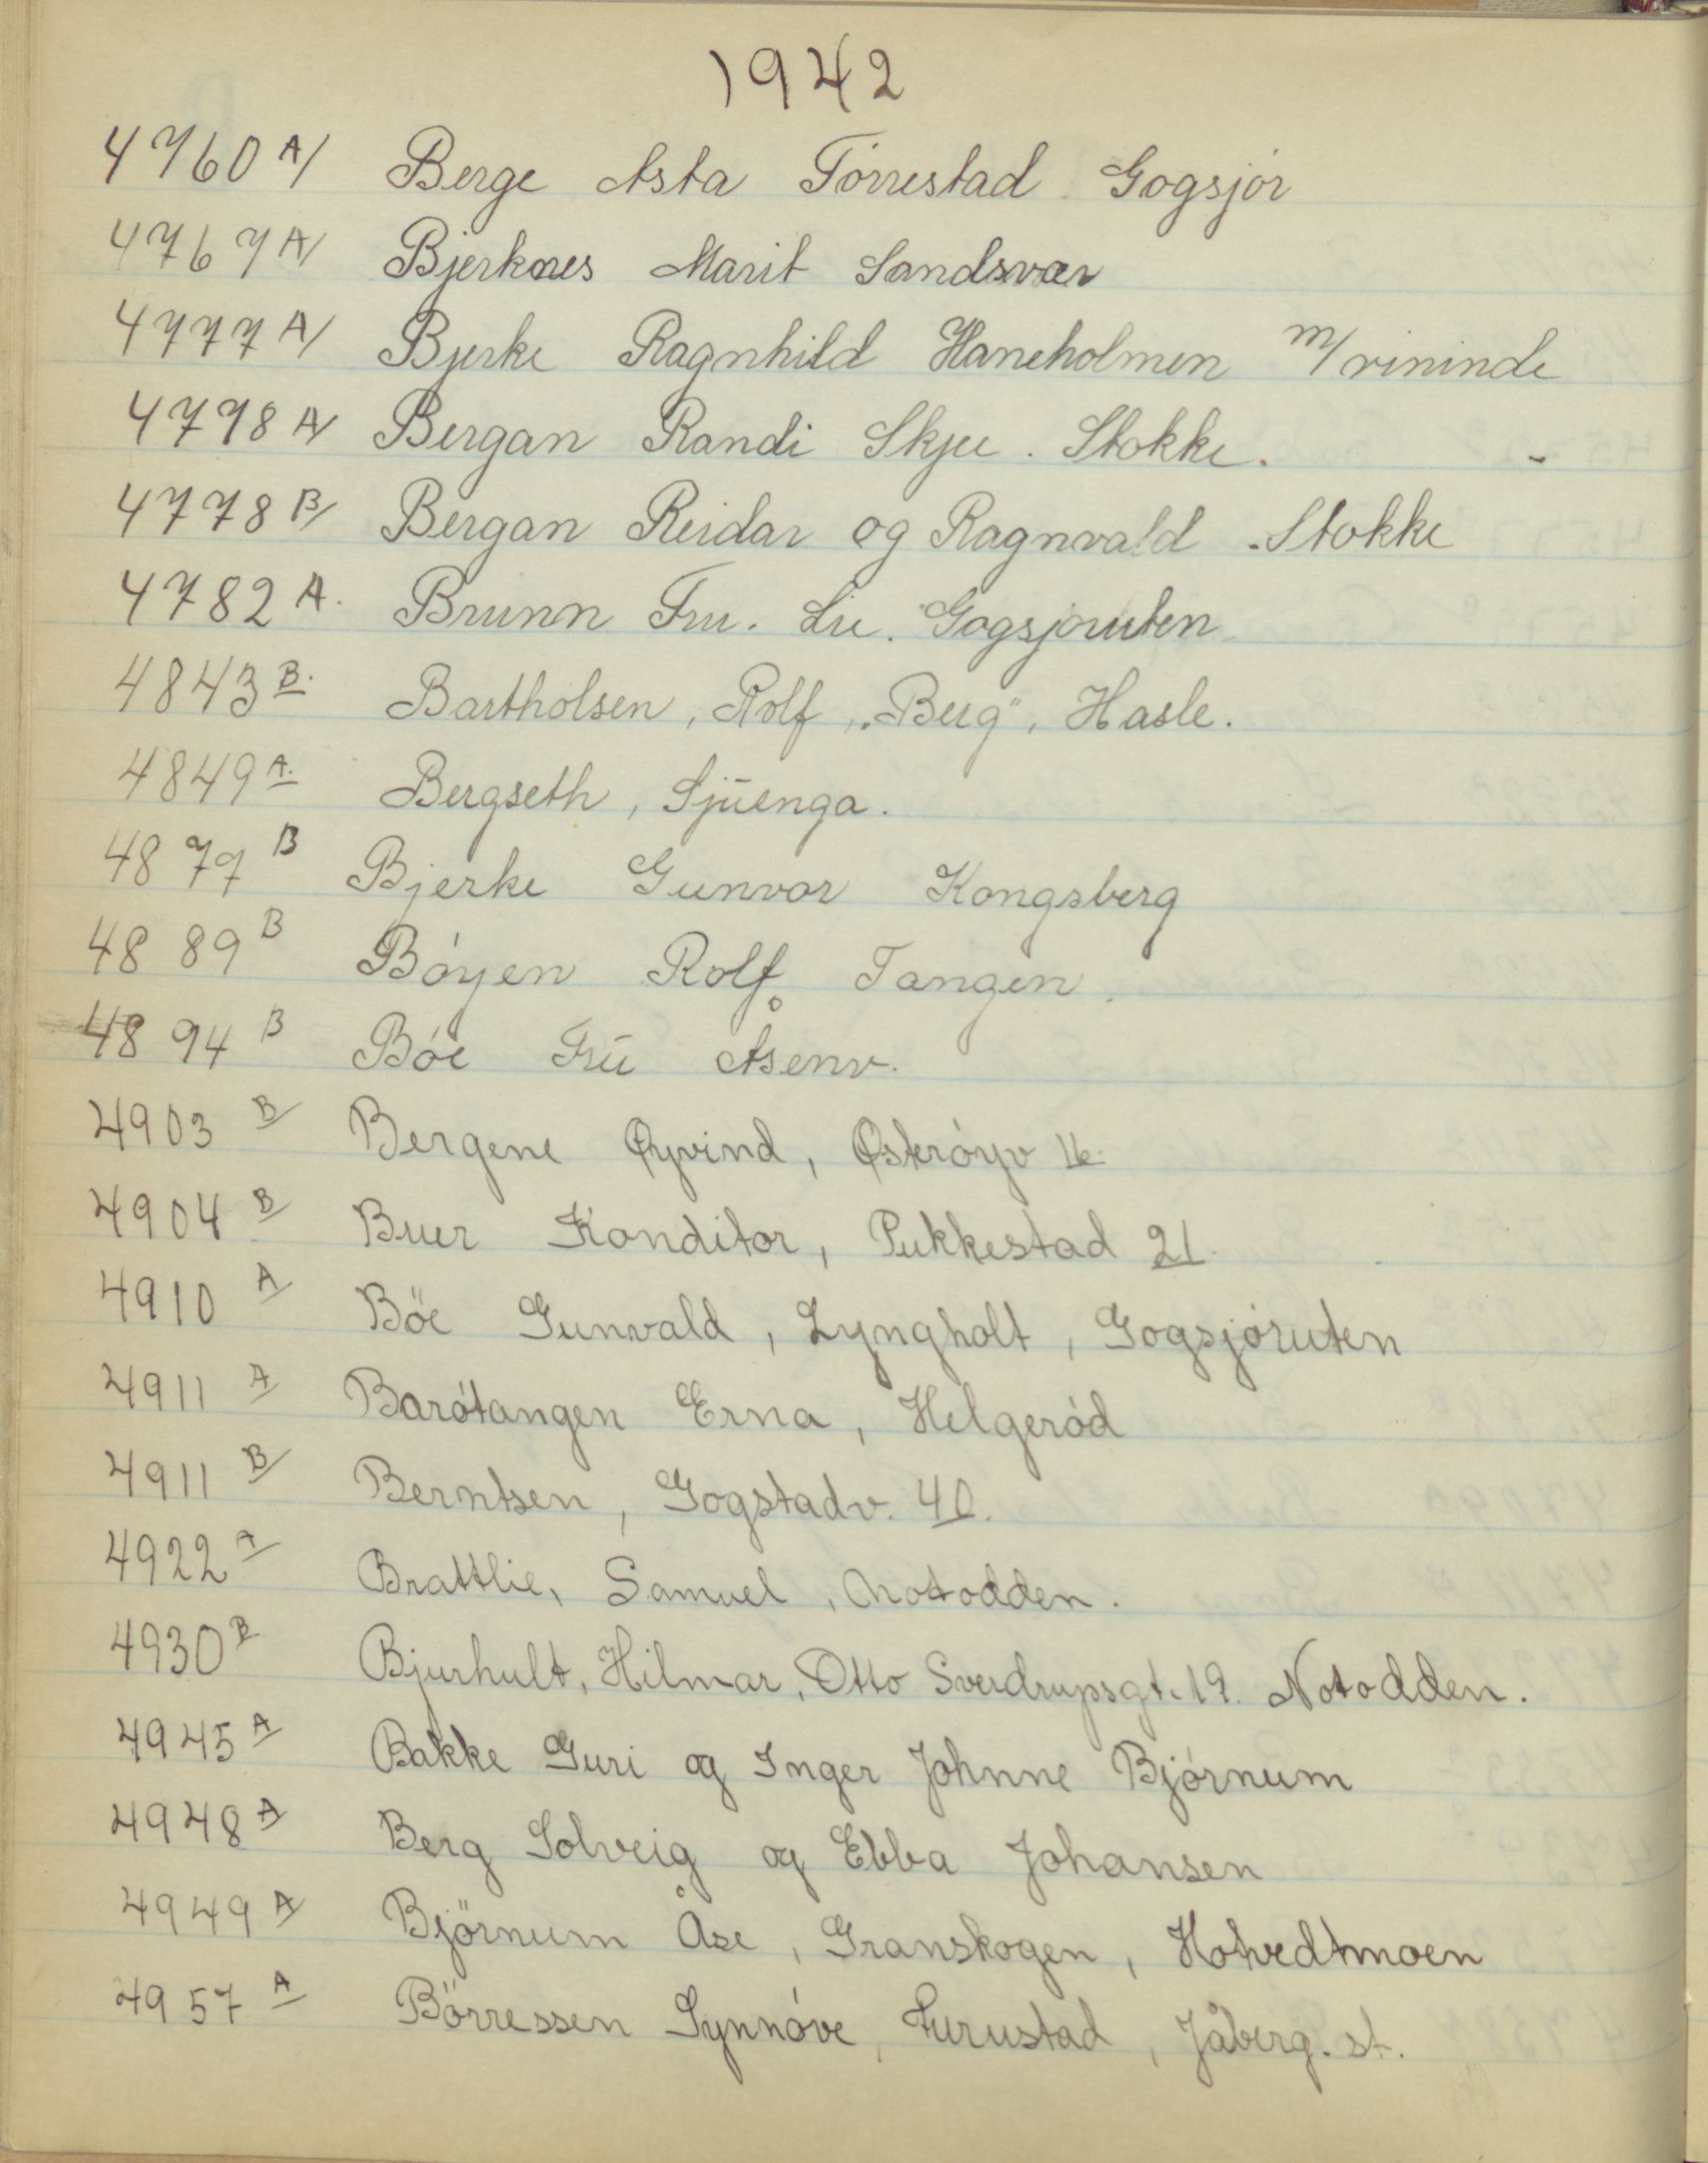 1942
4760 A/ Berge Asta Tórrestad Gogsjór
4767 A/ Bjerknes Marit Sandsvær
4777 A/ Bjerke Ragnhild Haneholmen m/
4778 A/ Bergan Randi Skjee. Stokke.
4778 B/ Bergan Reidar og Ragnvald. Stokke
4782 A. Brunn Fru. Lie. Gogsjoruten
4843 B. Bartholsen, Rolf „Berg", Hasle.
4849 A. Bergseth, Sjūenga.
4877 B Bjerke Gunvor Kongsberg
4889 B Bóyen Rolf Tangen.
4894 B Bóe Frū Åsenv.
4903 B/ Bergene Øyvind, Østeróyv 16.
4904 B/ Buer Konditor, Pukkestad 21.
4910 A/ Böe Gunvald, Lyngholt, Gogsjóruten
4911 A/ Barótangen Erna, Helgeród
4911 B/ Berntsen, Gogstadv. 40.
4922 A Brattlie, Samuel, Notodden.
4930 B Bjurhult, Hilmar, Otto Sverdrupsgt. 19. Notodden.
4945 A Bakke Guri og Inger Johnne Bjórnum
4948 A/ Berg Solveig og Ebba Johansen
4949 A/ Björnum Åse, Granskogen, Hotvedtmoen
4957 A Börressen Synnóve, Furustad, Jåberg. st.